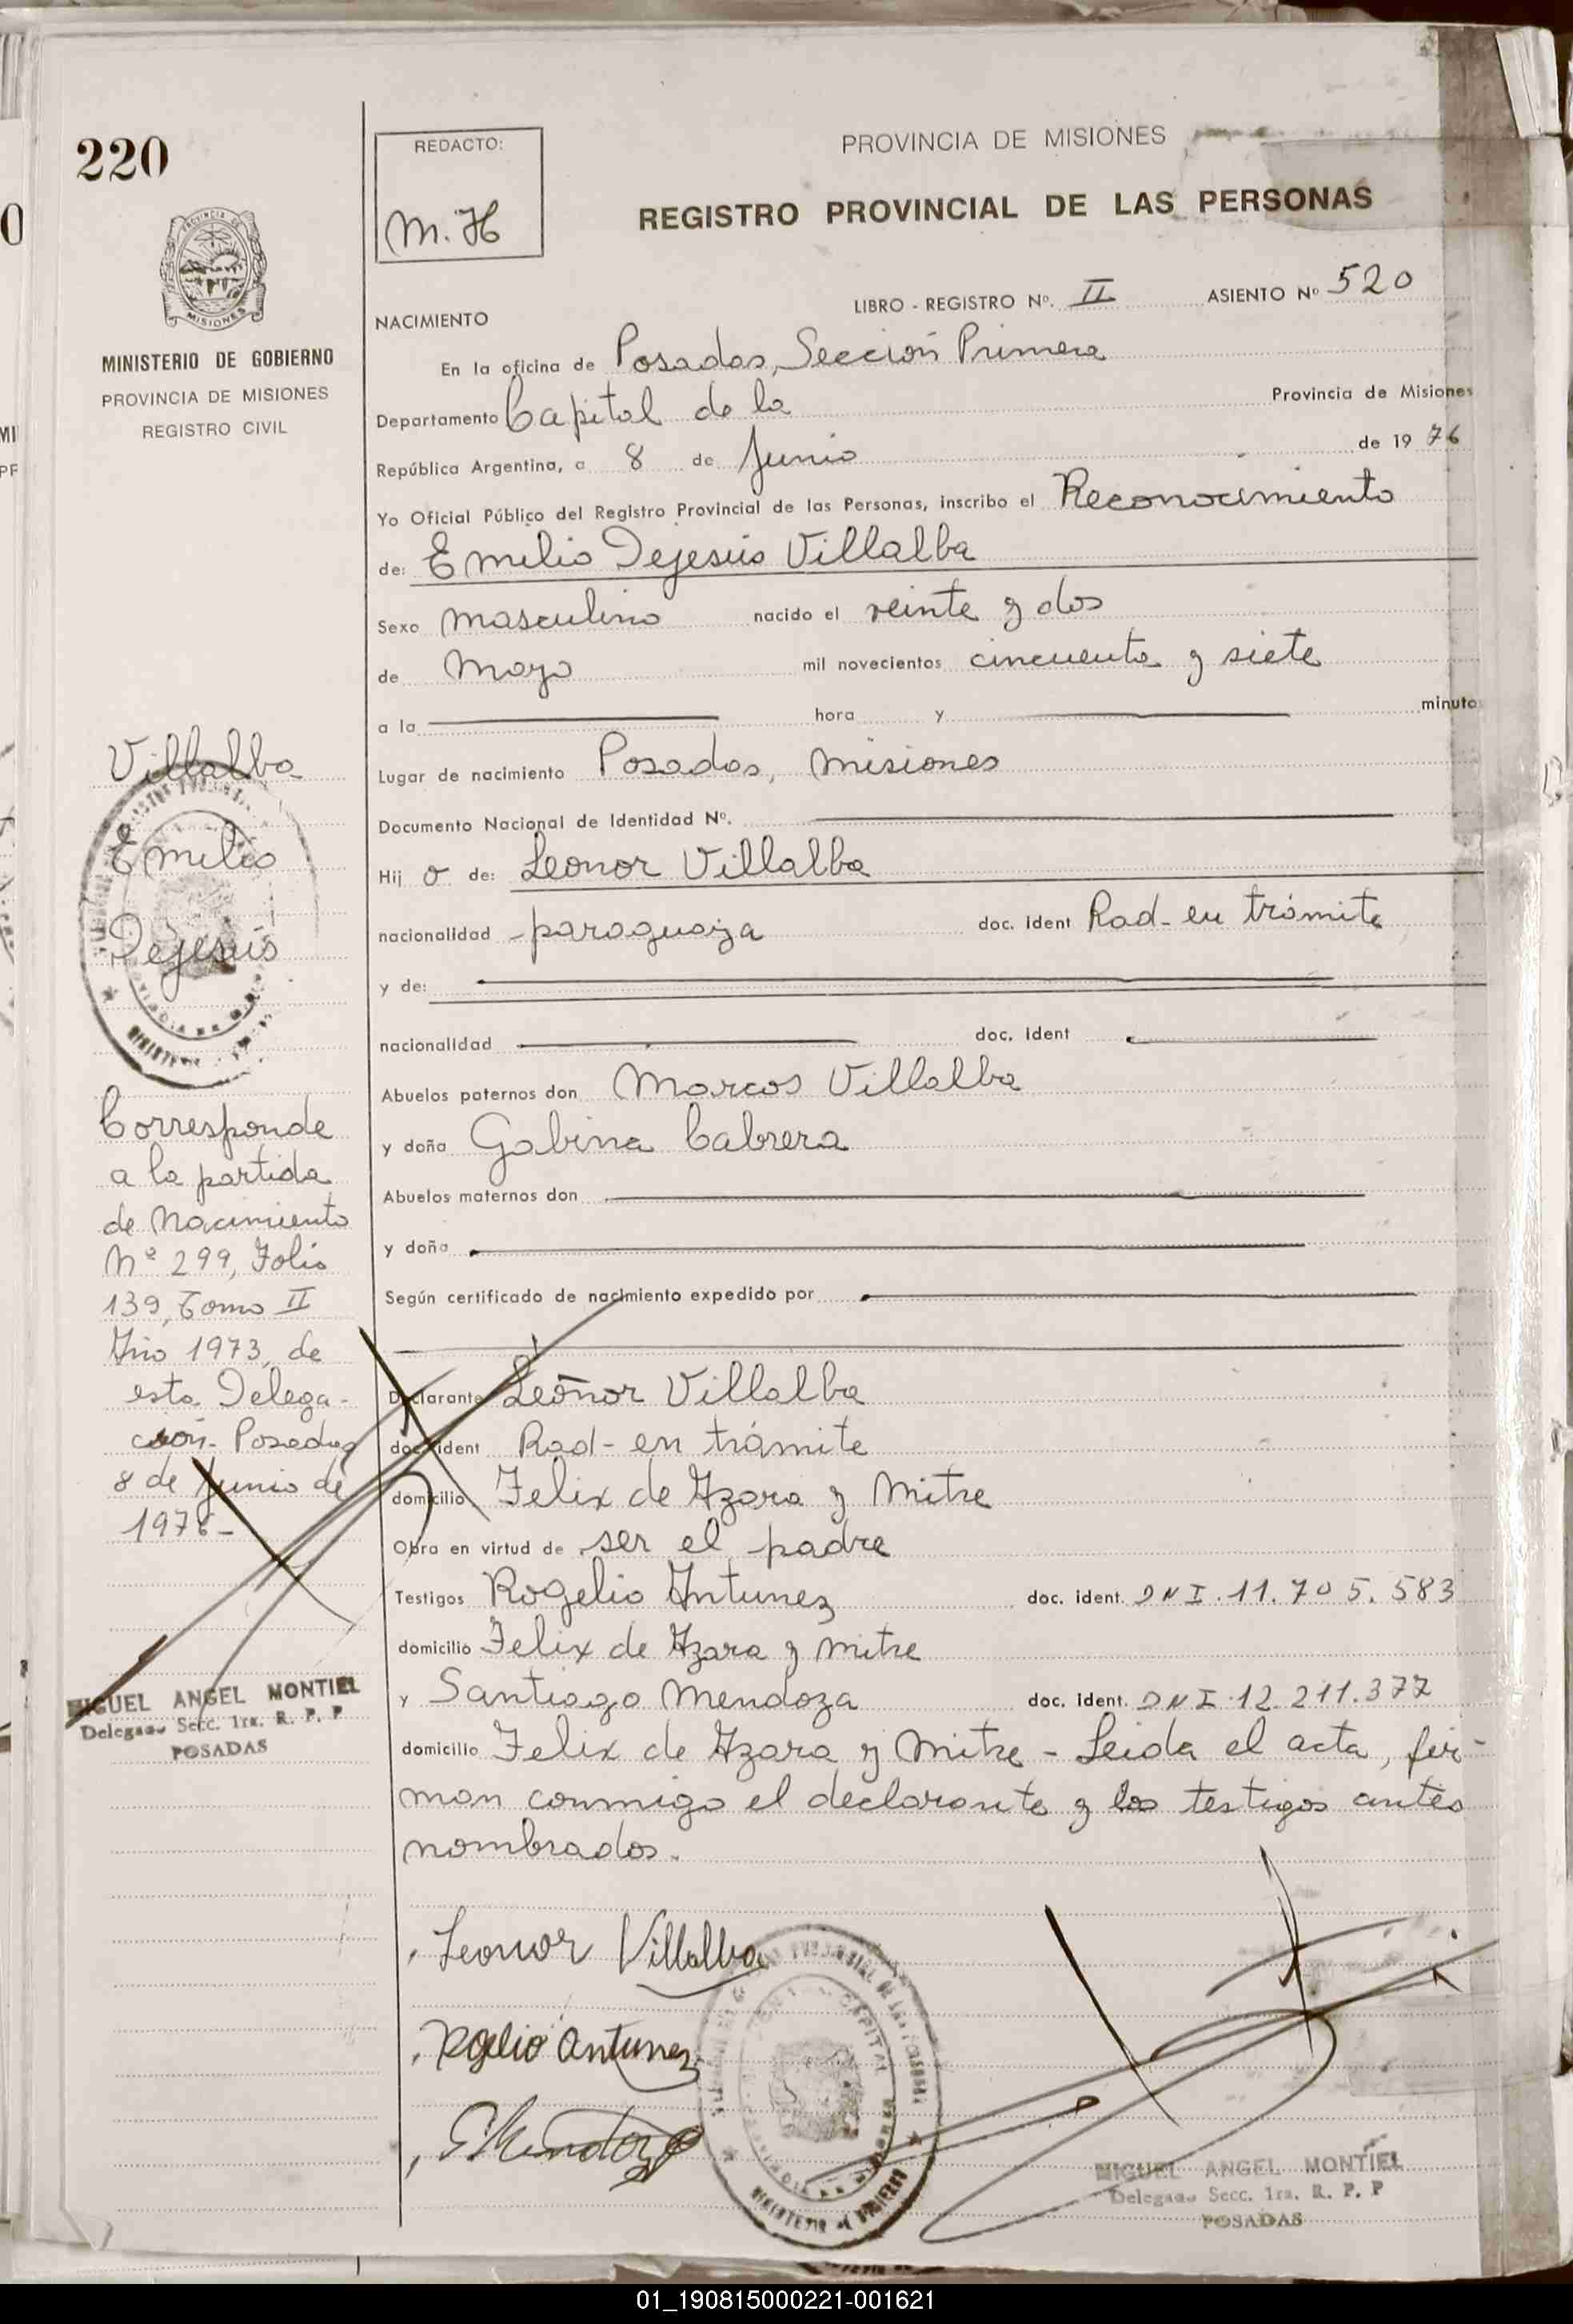 220
REDACTO:
M. H
PROVINCIA DE MISIONES
REGISTRO PROVINCIAL DE LAS PERSONAS
LIBRO - REGISTRO Nº. II ASIENTO Nº 520
MISIONES
MINISTERIO DE GOBIERNO
PROVINCIA DE MISIONES
REGISTRO CIVIL
NACIMIENTO
En la oficina de Posadas, Sección Primera
Departamento Capital de la Provincia de Misiones
República Argentina, a 8 de Junio de 1976
Yo Oficial Público del Registro Provincial de las Personas, inscribo el Reconocimiento
de: Emilio Dejesús Villalba
Sexo masculino nacido el veinte y dos
de Mayo mil novecientos cincuenta y siete
a la hora y minuto
Lugar de nacimiento Posadas, Misiones
Documento Nacional de Identidad Nº.
Hij o de: Leonor Villalba
nacionalidad paraguaya doc. ident Rad- en trámite
y de:
nacionalidad doc. ident
Abuelos paternos don Marcos Villalba
y doña Gabina Cabrera
Abuelos maternos don
y doña
Según certificado de nacimiento expedido por
Declarante Leonor Villalba
doc ident Rad- en trámite
domicilio Felix de Azara y Mitre
Obra en virtud de ser el padre
Testigos Rogelio Antunez doc. ident. DNI. 11.705.583
domicilio Felix de Azara y Mitre
y Santiago Mendoza doc. ident. DNI 12.211.377
domicilio Felix de Azara y Mitre - Leida el acta, fir-
man conmigo el declarante y los testigos antes
nombrados.
Villalba
Emilio
Dejesús
Corresponde
a la partida
de Nacimiento
Nº 299, Folio
139, Tomo II
Año 1973, de
esta Delega-
ción- Posadas
8 de Junio de
1976-
MIGUEL ANGEL MONTIEL
Delegado Secc. 1ra. R. P. P
POSADAS
Leonor Villalba
Rogelio Antunez
S Mendoza
CAPITAL
MINISTERIO DE GOBIERNO
MIGUEL ANGEL MONTIEL
Delegado Secc. 1ra. R. P. P
POSADAS
01_190815000221-001621